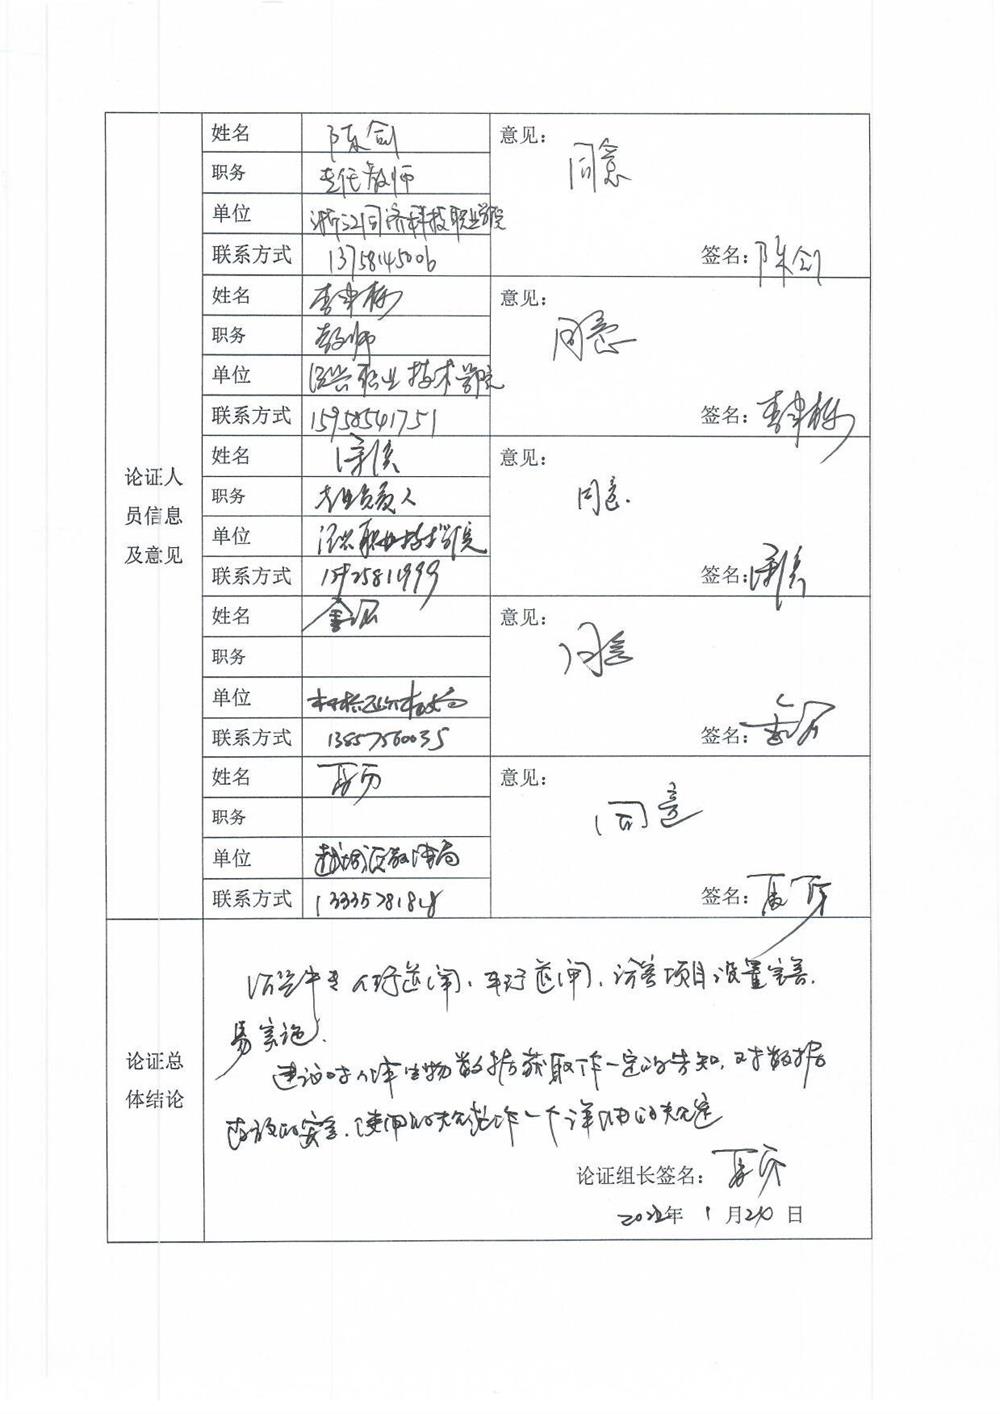 姓名 陈剑
职务 专任教师
单位 浙江同济科技职业学院
联系方式 13758145006
意见：
同意
签名：陈剑
姓名
职务 教师
单位 绍兴职业技术学院
联系方式 15958541751
意见：
同意
签名：
姓名
职务 专业负责人
单位 绍兴职业技术学院
联系方式 15925811999
意见：
同意.
签名：
姓名
职务
单位
联系方式 13857560035
意见：
同意
签名：
姓名
职务
单位 越城区教体局
联系方式 13335781818
意见：
同意
签名：
论证人
员信息
及意见
论证总
体结论
绍兴中专人行道闸、车行道闸、访客项目设置完善,
易实施.
建议对人体生物数据获取作一定的告知, 对数据
的安全、使用的规范作一个详细的规定
论证组长签名：
年 1 月 日